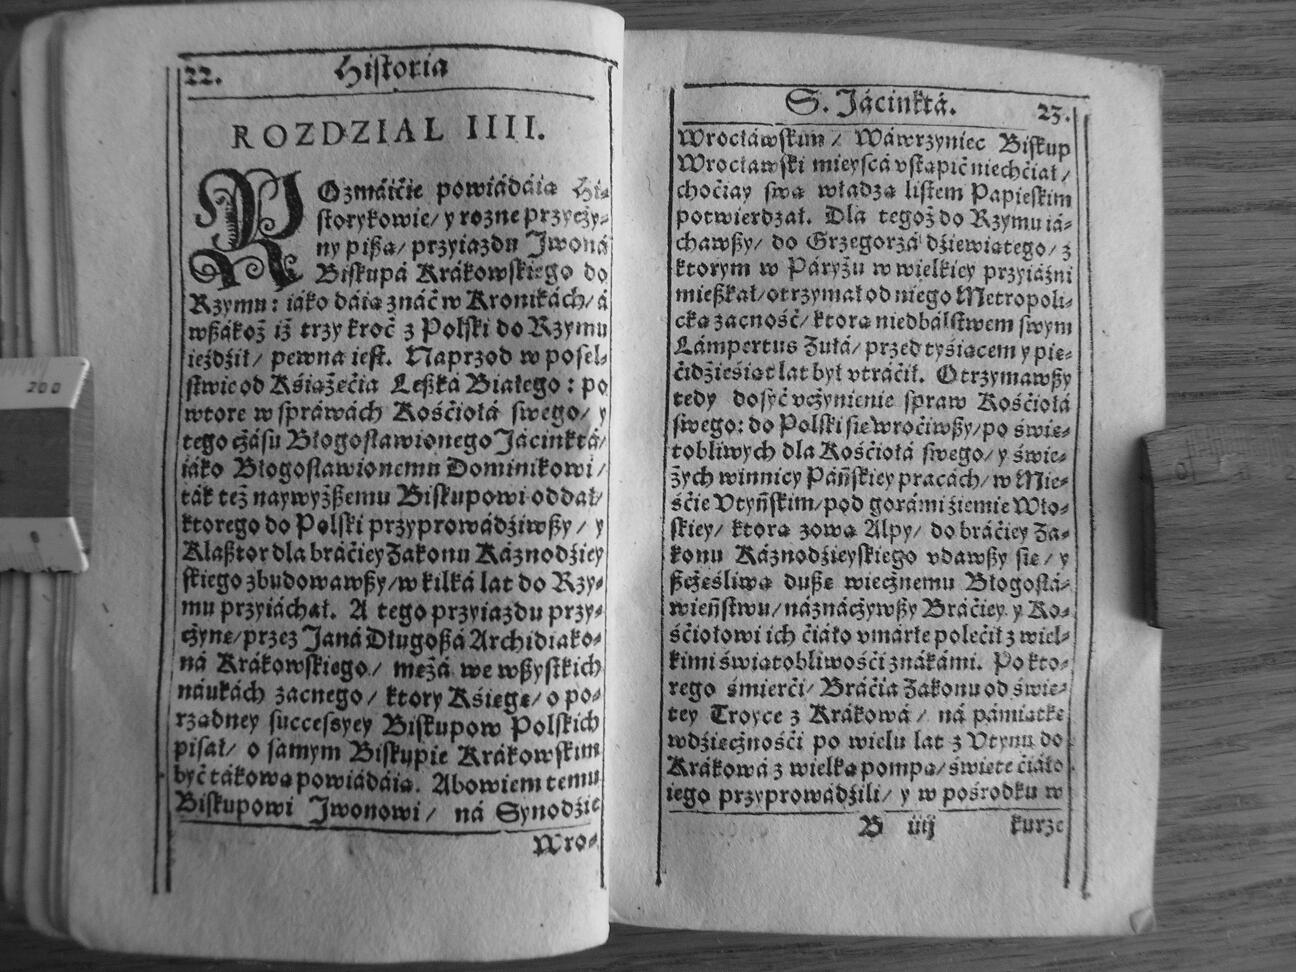 22. Historia
ROZDZIAL IIII.
ROzmáićie powiádáią Hi-
storykowie/ y rozne przyczy-
ny pißą/ przyiazdu Jwoná
Biskupá Krákowskiego do
Rzymu: iáko dáią znáć w Kronikách/ á
wßákoż iż trzy kroć z Polski do Rzymu
ieźdźił/ pewna iest. Naprzod w posel-
stwie od Kśiążećia Leßká Białego: po
wtore w spráwách Kośćiołá swego/ y
tego czásu Błogosławionego Jácinktá/
iáko Błogosławionemu Dominikowi/
ták też naywyżßemu Biskupowi oddał/
ktorego do Polski przyprowádźiwßy/ y
Klaßtor dla bráćiey Zakonu Káznodźiey
skiego zbudowawßy/ w kilká lat do Rzy-
mu przyiáchał. A tego przyiazdu przy-
czynę/ przez Janá Długoßá Archidiako-
ná Krákowskiego/ mężá we wßystkich
náukách zacnego/ ktory Kśięgę/ o po-
rządney successyey Biskupow Polskich
pisał/ o samym Biskupie Krákowskim
być tákową powiádáią. Abowiem temu
Biskupowi Jwonowi/ ná Synodźie
Wro-
S. Jácinktá. 23.
Wrocłáwskim/ Wáwrzyniec Biskup
Wrocławski mieyscá vstąpić niechćiał/
choćiay swą władzą listem Papieskim
potwierdzał. Dla tegoż do Rzymu iá-
chawßy/ do Grzegorzá dźiewiątego/ z
ktorym w Páryżu w wielkiey przyiáźni
mießkał/ otrzymał od niego Metropoli-
cką zacność/ ktorą niedbálstwem swym
Lámpertus Zulá/ przed tyśiącem y pię-
ćidźieśiąt lat był vtráćił. Otrzymawßy
tedy dosyć vczynienie spraw Kośćiołá
swego: do Polski się wroćiwßy/ po świę-
tobliwych dla Kośćiołá swego/ y świe-
żych winnicy Páńskiey pracách/ w Mie-
śćie Vtyńskim/ pod gorámi źiemie Wło-
skiey/ ktorą zową Alpy/ do bráćiey Za-
konu Káznodźieyskiego vdawßy się/ y
ßczęśliwą dußę wiecznemu Błogosłá-
wieństwu/ náznáczywßy Bráćiey y Ko-
śćiołowi ich ćiáło vmárłe polećił z wiel-
kimi świątobliwośći znákámi. Po kto-
rego śmierći/ Bráćia Zakonu od świę-
tey Troyce z Krákowá/ ná pámiątkę
wdźięcznośći po wielu lat z Vtynu do
Krákowá z wielką pompą/ święte ćiáło
iego przyprowádźili/ y w pośrodku w
B iiij kurze